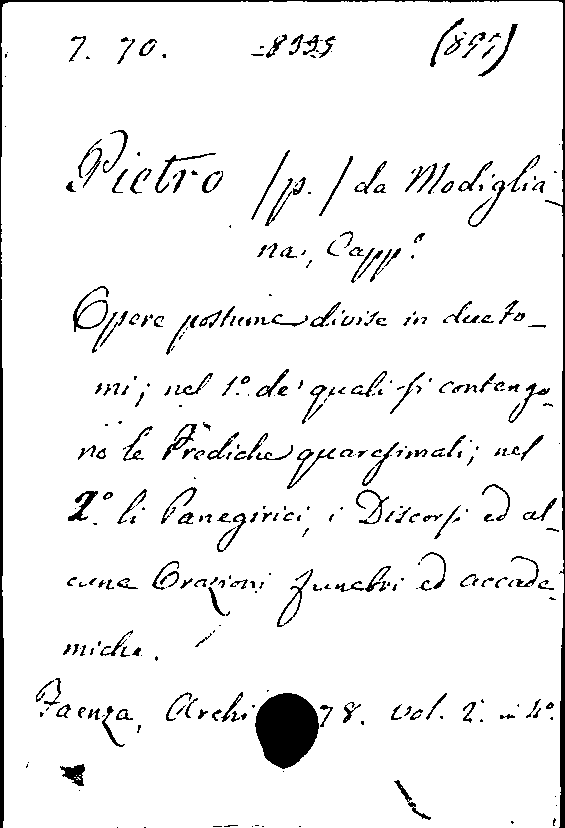 7. 70. -8395 (895)
Pietro /p./ da Modiglia-
na, Capp.º
Opere postume divise in due to-
mi; nel 1.º de' quali si contengo-
no le Prediche quaresimali; nel
2.º li Panegirici, i Discorsi ed al-
cune Orazioni funebri ed accade-
miche.
Faenza, Archi 78. vol. 2. in 4º.